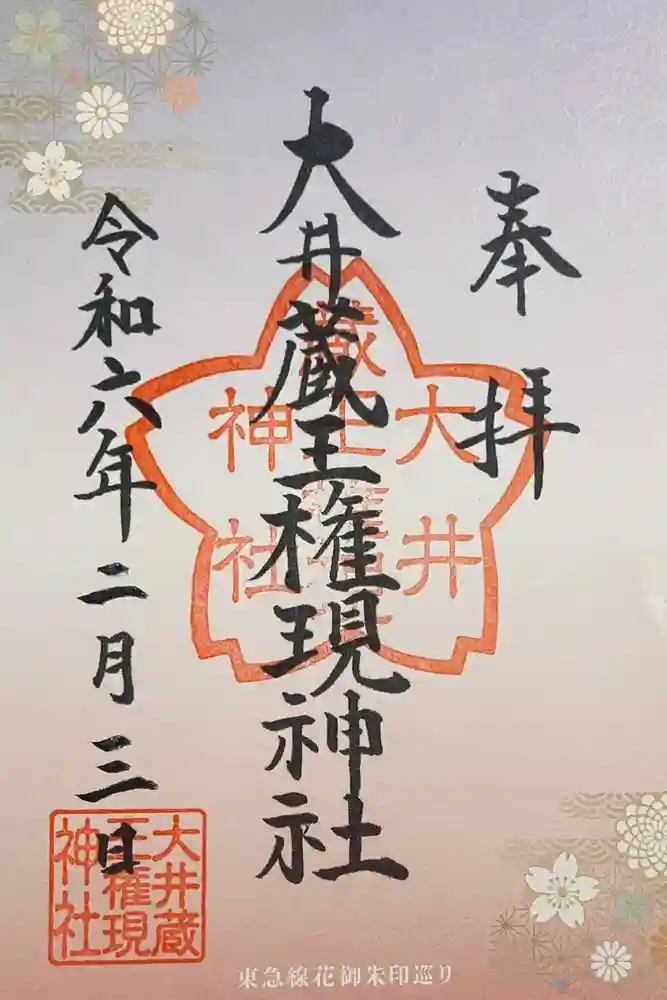 奉拝
大井蔵王権現神社
令和六年二月三日
大井
蔵王権現
神社
大井蔵
王権現
神社
東急線花御朱印巡り